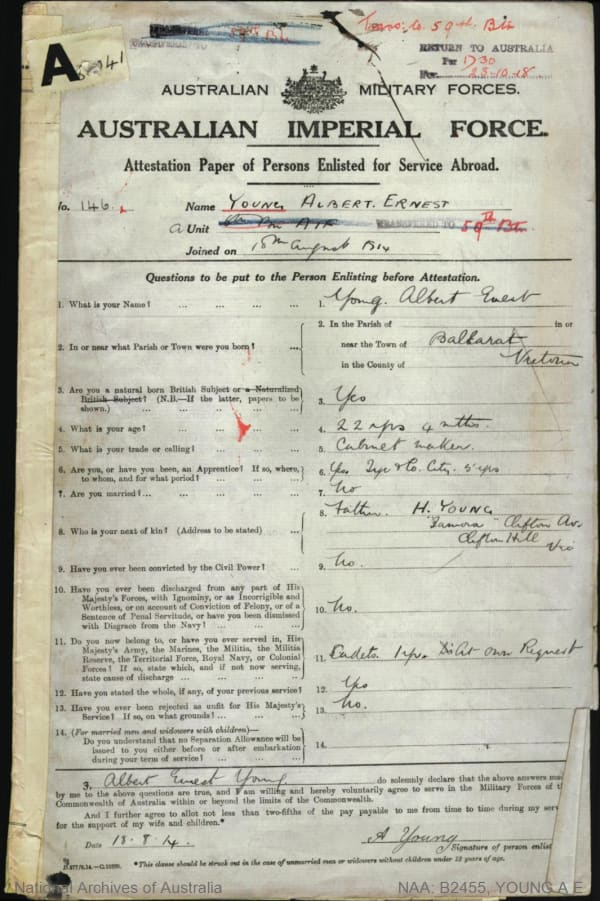 Trans. to 59th Bn
TRANSFERRED TO
A
RETURN TO AUSTRALIA
Per D30
23-10-18
AUSTRALIAN MILITARY FORCES.
AUSTRALIAN IMPERIAL FORCE.
Attestation Paper of Persons Enlisted for Service Abroad.
No. 146 Name YOUNG ALBERT ERNEST
Unit TRANSFERRED TO 59th Bn
Joined on 18th August 1914
Questions to be put to the Person Enlisting before Attestation.
1. What is your Name? ... 1. Young. Albert Ernest
2. In or near what Parish or Town were you born? ... 2. In the Parish of in or
near the Town of Ballarat
in the County of Victoria
3. Are you a natural born British Subject or a Naturalized
British Subject? (N.B.—If the latter, papers to be
shown.) ... 3. Yes
4. What is your age? ... 4. 22 yrs 4 mths.
5. What is your trade or calling? ... 5. Cabinet maker.
6. Are you, or have you been, an Apprentice? If so, where,
to whom, and for what period? ... 6. Yes. & Co. City. 5 yrs
7. Are you married? ... 7. No
8. Who is your next of kin? (Address to be stated) ... 8. Father. H. YOUNG
Clifton Av.
Clifton Hill
Vic
9. Have you ever been convicted by the Civil Power? ... 9. No.
10. Have you ever been discharged from any part of His
Majesty's Forces, with Ignominy, or as Incorrigible and
Worthless, or on account of Conviction of Felony, or of a
Sentence of Penal Servitude, or have you been dismissed
with Disgrace from the Navy? ... 10. No.
11. Do you now belong to, or have you ever served in, His
Majesty's Army, the Marines, the Militia, the Militia
Reserve, the Territorial Force, Royal Navy, or Colonial
Forces? If so, state which, and if not now serving,
state cause of discharge ... 11. Cadets. 1 yr. Dis At own Request
12. Have you stated the whole, if any, of your previous service? 12. Yes
13. Have you ever been rejected as unfit for His Majesty's
Service? If so, on what grounds? ... 13. No.
14. (For married men and widowers with children)—
Do you understand that no Separation Allowance will be
issued to you either before or after embarkation
during your term of service? ... 14.
3. Albert Ernest Young do solemnly declare that the above answers
by me to the above questions are true, and I am willing and hereby voluntarily agree to serve in the Military Forces of
Commonwealth of Australia within or beyond the limits of the Commonwealth.
And I further agree to allot not less than two-fifths of the pay payable to me from time to time during my
for the support of my wife and children.*
Date 18.8.14. A Young
Signature of person enlist
*This clause should be struck out in the case of unmarried men or widowers without children under 18 years of age.
National Archives of Australia NAA: B2455, YOUNG A E